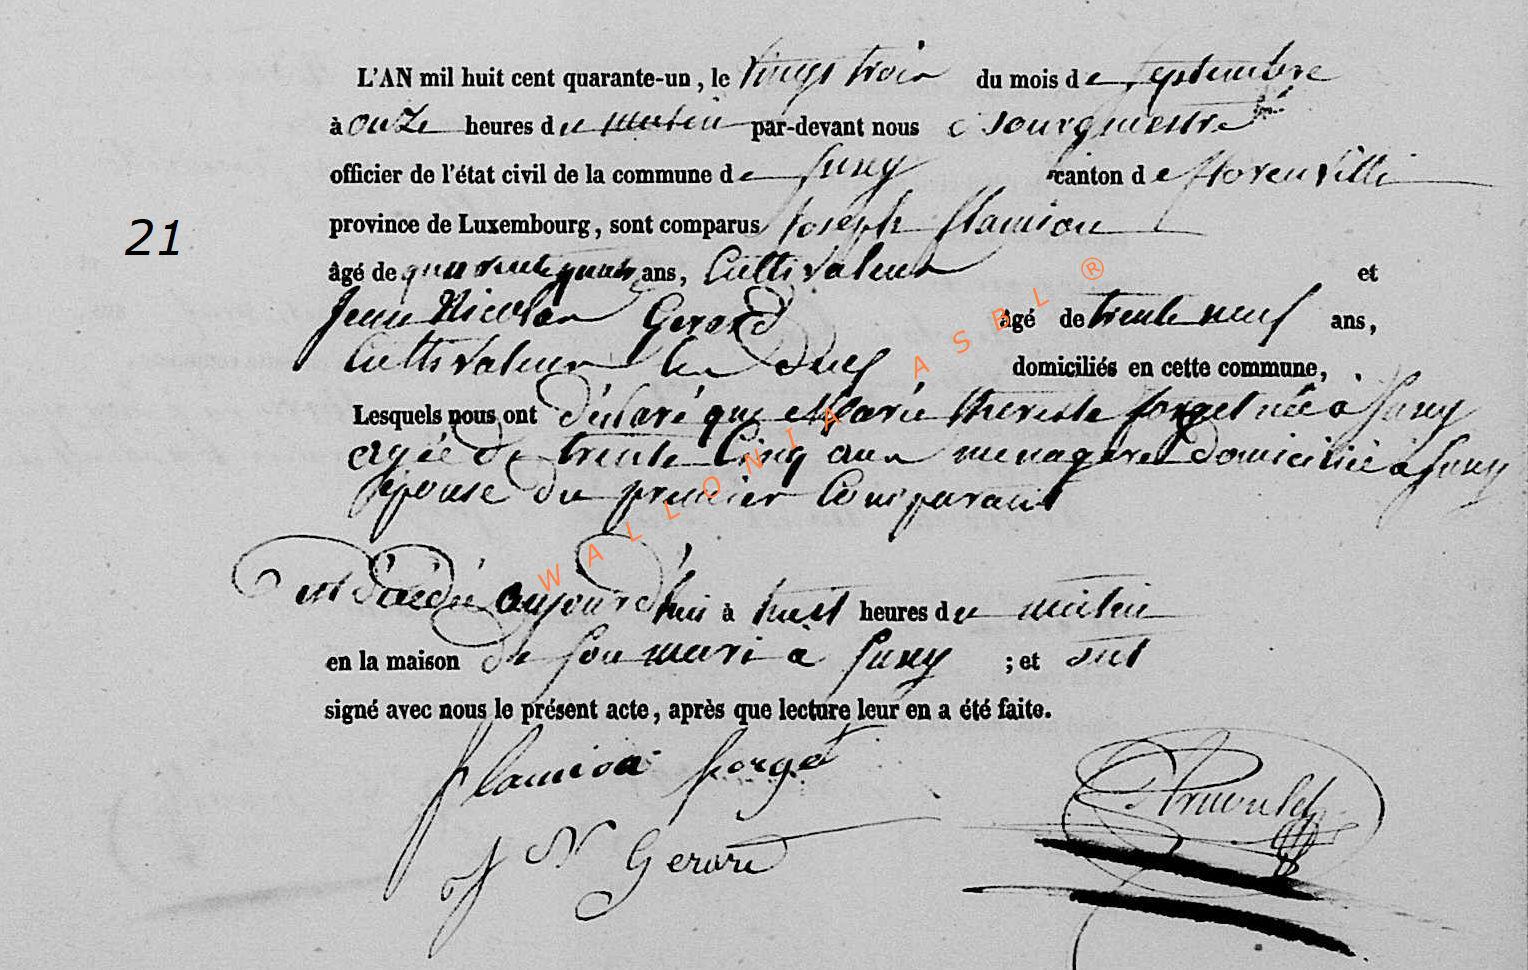 L'AN mil huit cent quarante-un, le vingt trois du mois de septembre
à onze heures du matin par-devant nous Bourgmestre
officier de l'état civil de la commune de Suxy canton de florenville
province de Luxembourg, sont comparus Joseph flamion
21
âgé de quarente quatre ans, Cultivateur et
Jean Nicolas Gerard âgé de trente neuf ans,
Cultivateur les deux domiciliés en cette commune,
Lesquels nous ont déclaré que Marie therese forget née à Suxy
agée de trente Cinq ans menagere domiciliée à Suxy
épouse du premier Comparant
est décédée aujourd'hui à huit heures du matin
en la maison de son mari à Suxy ; et ont
signé avec nous le présent acte, après que lecture leur en a été faite.
flamion forget
J N Gerard
WALLONIA ASBL ®